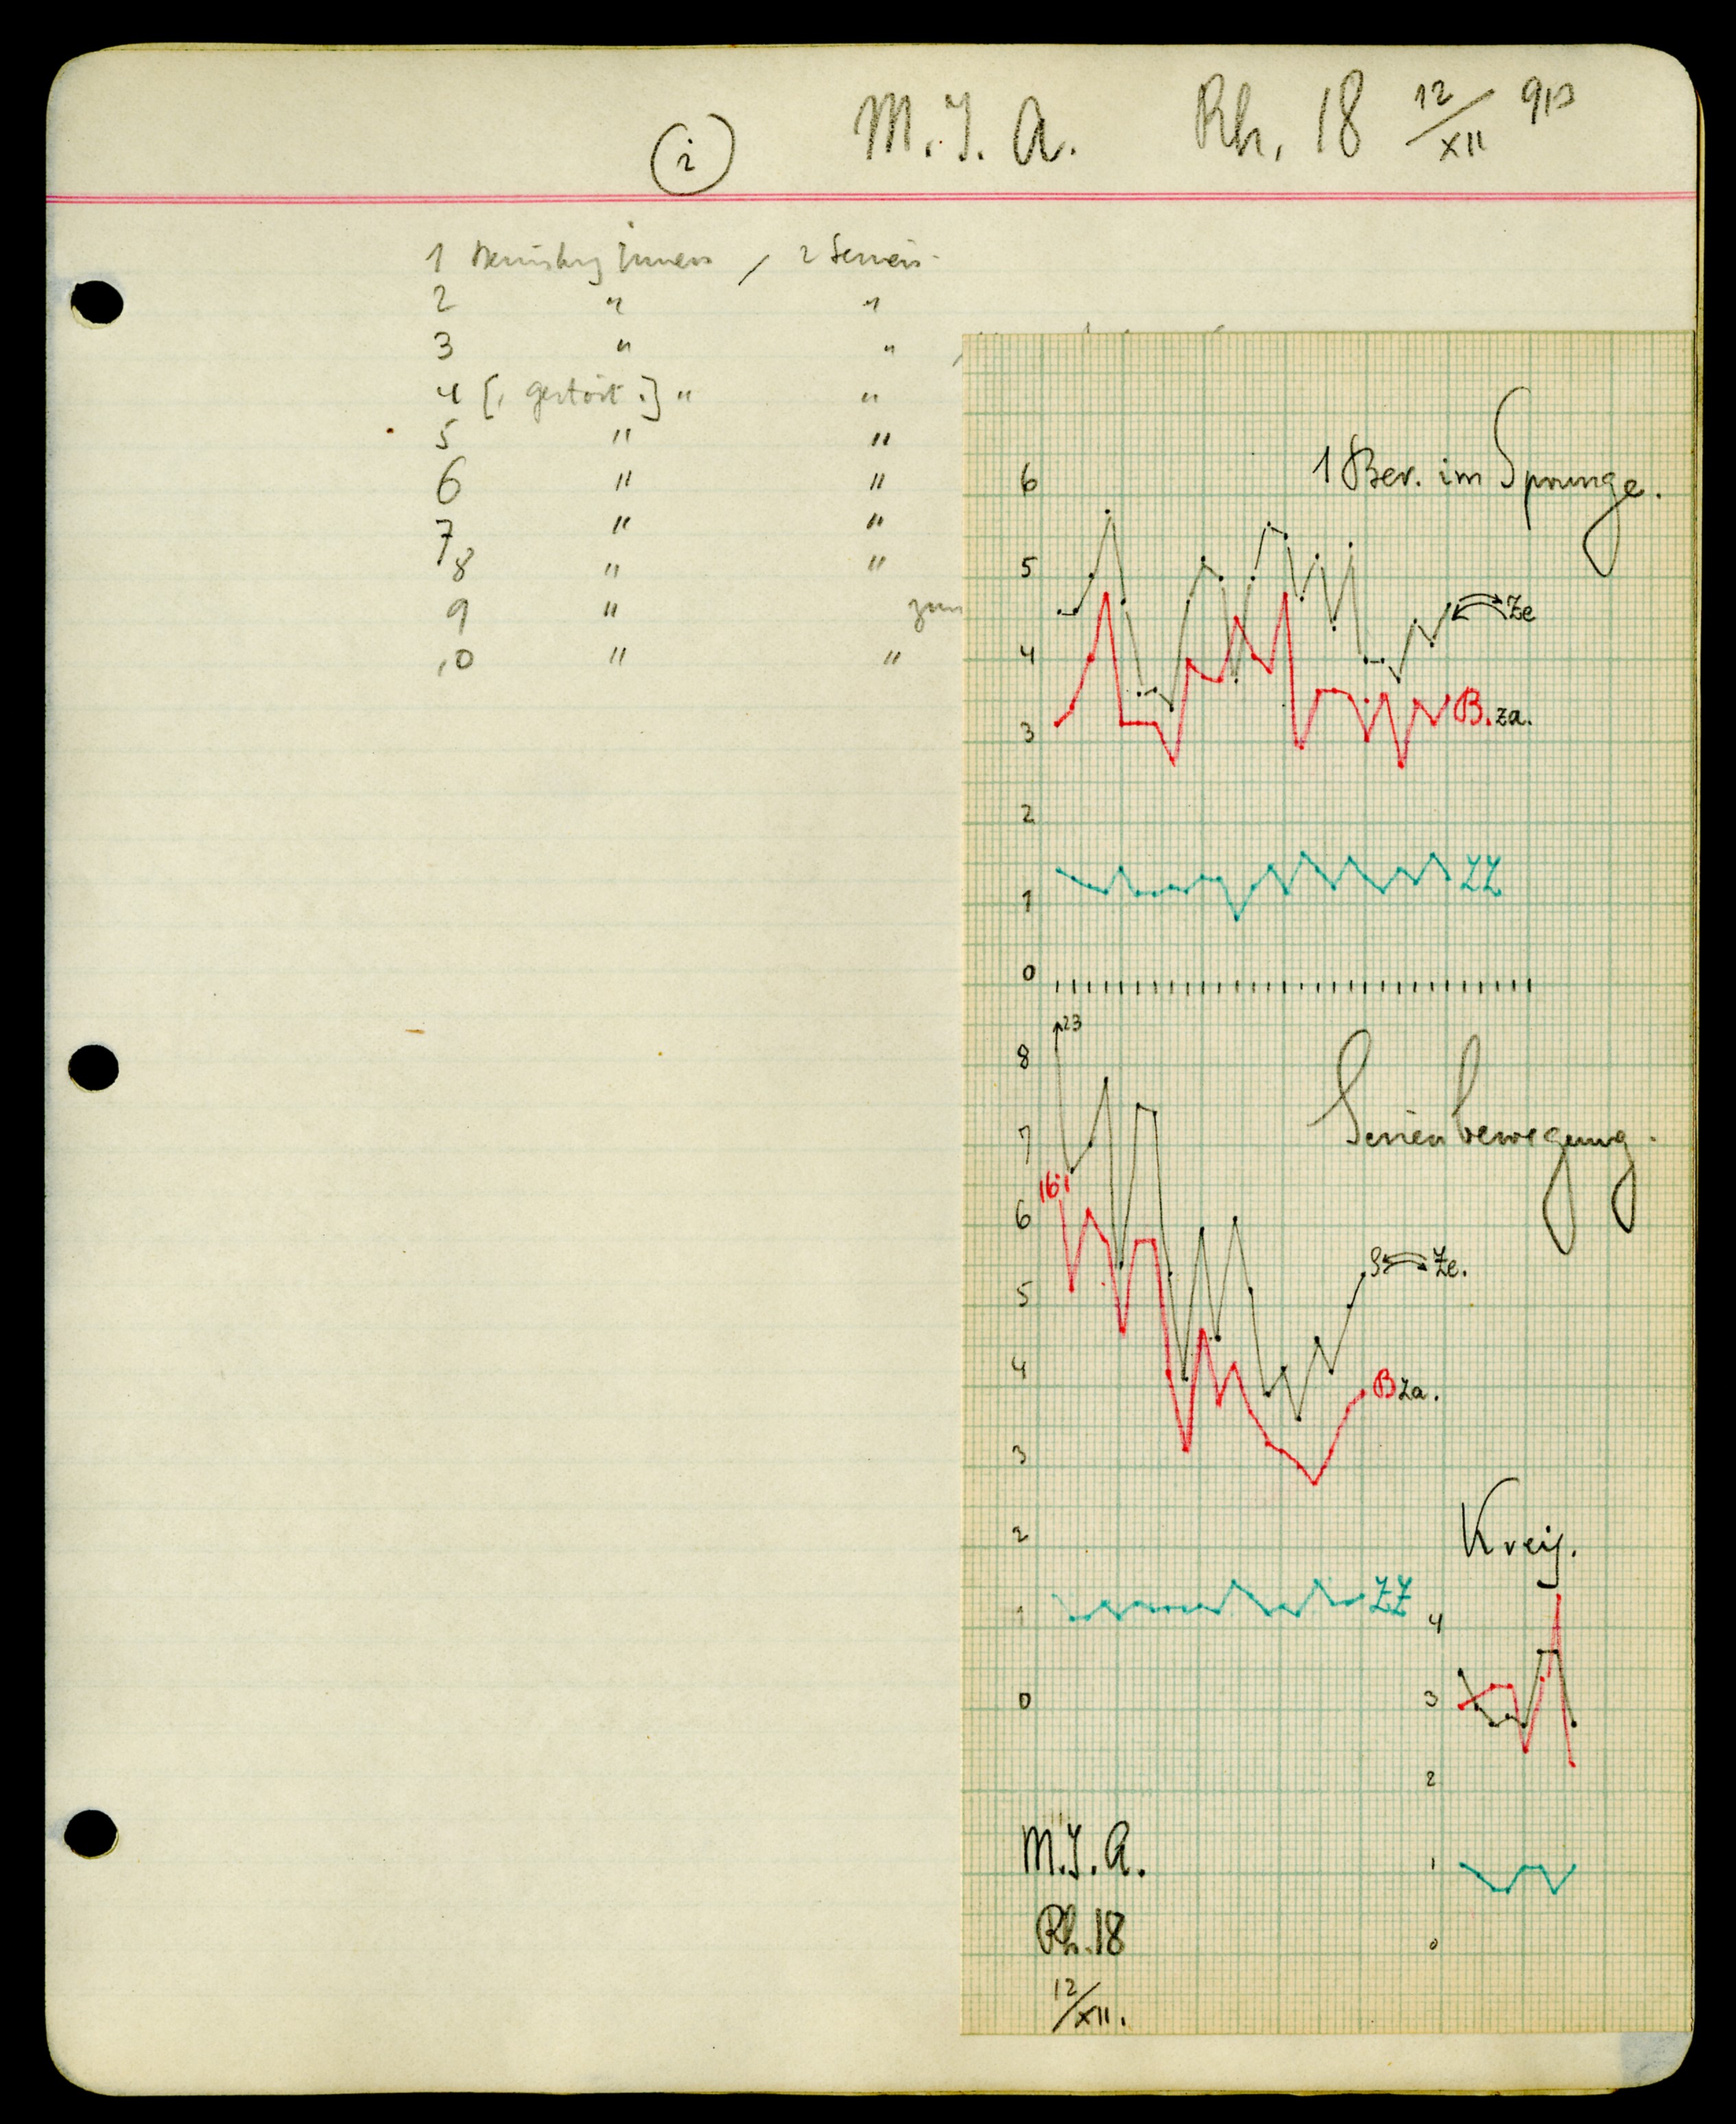 2 M. I. A. Rh. 18 12/XII 913
1 / 2 Serien
2 " "
3 " "
4 [, gestört.] " "
5 " "
6 " "
7 " "
8 " "
9 " zum
10 " "
1 Bew. im Sprunge.
6
5
Ze
4
B. za.
3
2
ZZ
1
0
23
8
Serienbewegung.
7
16
6
Ze.
5
4
B za.
3
2
Kreis.
ZZ
1
4
0
3
2
M. I. A.
1
Rh. 18
0
12/XII.